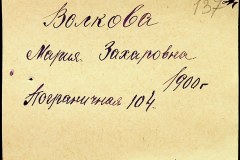 137
Волкова
Мария Захаровна
1900г
Пограничная 104.